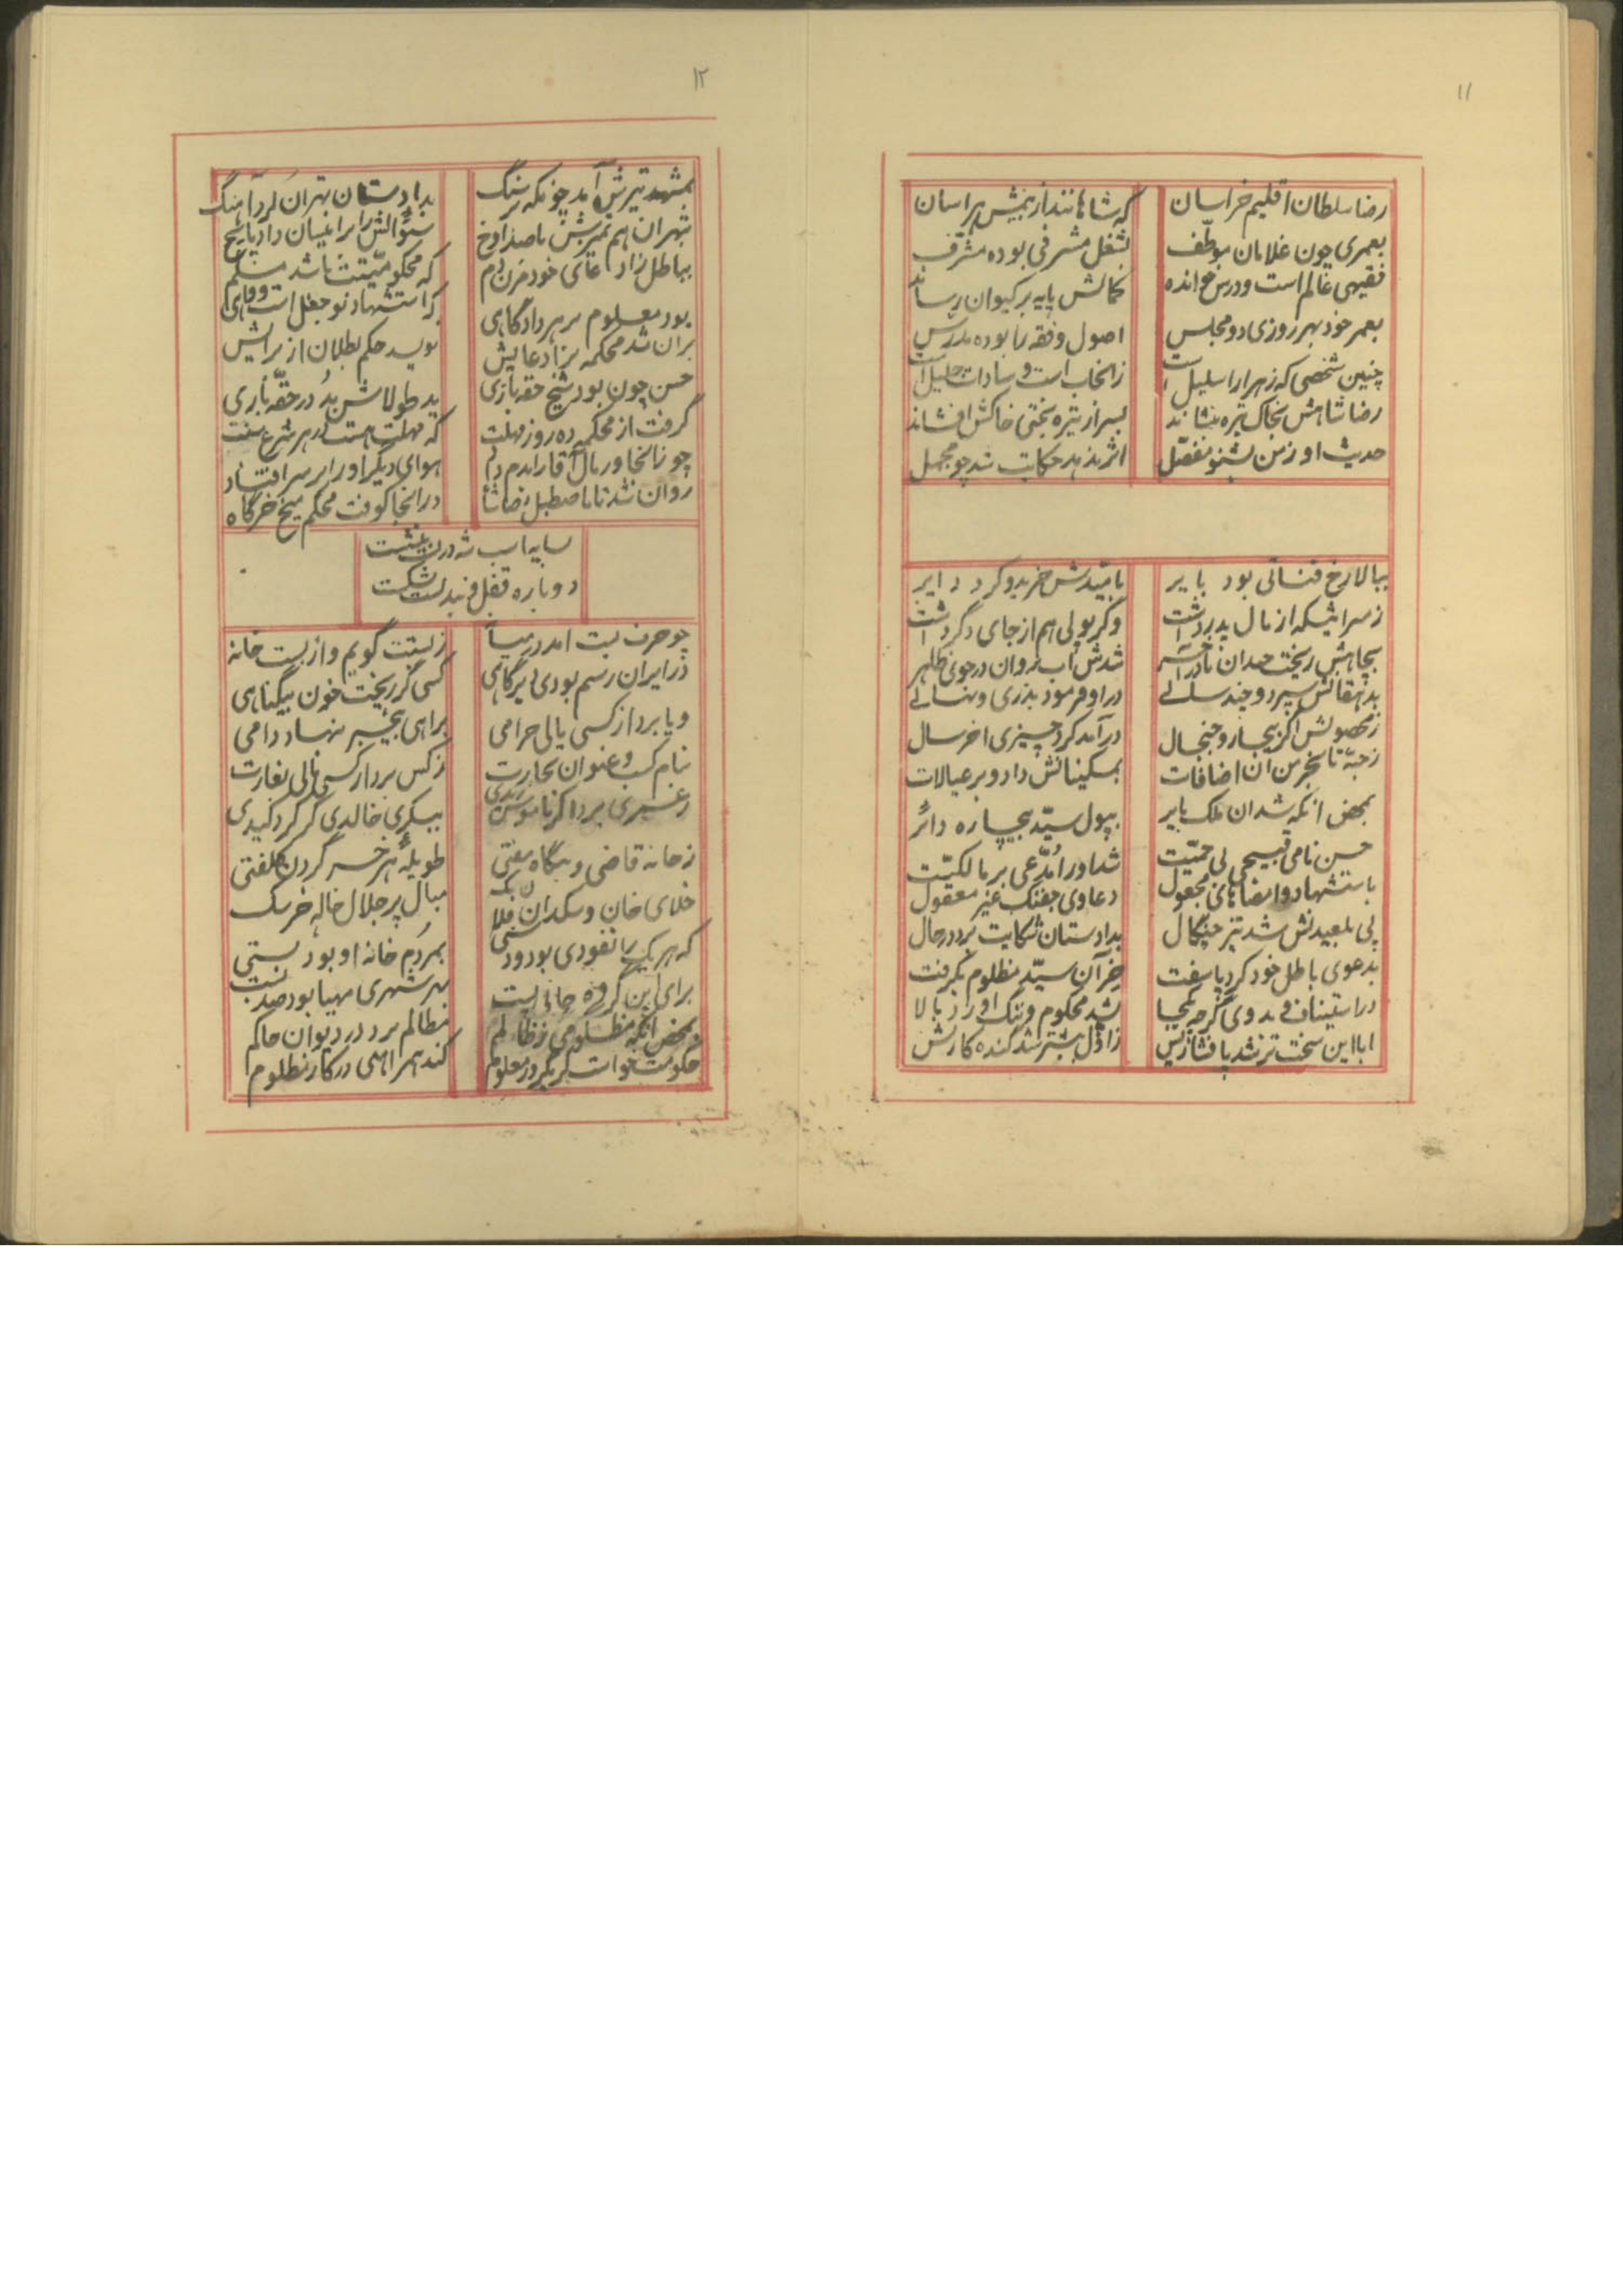 ۱۱
رضا سلطان اقلیم خراسان
که شاهانند از بیمش هراسان
بعمری چون غلامان موظّف
بشغل مشرفی بوده مشرّف
فقیهی عالم است و درس خوانده
کمالش پایه بر کیوان رسانده
بعمر خود بهر روزی دو مجلس
اصول و فقه را بوده مدرّس
چنین شخصی که زهرا را سلیل است
ز انجاب است و سادات جلیل است
رضا شاهش بخاک تیره بنشاند
بسر از تیره بختی خاکش افشاند
حدیث او ز من بشنو مفصّل
اثر ندهد حکایت شد چو مجمل
ببالارخ قناتی بود بایر
بامّیدش خرید و کرد دایر
ز سرمایه که از مال پدر داشت
وگر پولی هم از جای دگر داشت
بچاهش ریخت چندان تا در آخر
شدش آب روان در جوی ظاهر
بدهقانش سپرد و چند سالی
در او فرمود بذری و نهالی
ز محصولش اگر بیجار و جنجال
درآمد کرد چیزی آخر سال
ز حبّه تا بخرمن آن اضافات
بمسکینانش داد و بر عیالات
بمحض آنکه شد آن ملک بایر
بپول سیّد بیچاره دائر
حسن نامی قبیحی بی حمیّت
شد او را مدّعی بر مالکیّت
باستشهاد و امضاهای مجعول
دعاوی جفنگ غیر معقول
پی بلعیدنش شد تیز چنگال
بدادستان شکایت برد در حال
بدعوی باطل خود کرد پا سفت
خر آن سیّد مظلوم بگرفت
در استیناف بدوی گرچه یکجا
بشد محکوم و ننگ او زد بالا
ابا این سخت تر شد پافشاریش
ز اوّل بیشتر شد گنده کاریش
۱۲
بمشهد تیرش آمد چونکه بر سنگ
بدادستان تهران کرد آهنگ
بتهران هم تمیزش با صد آوخ
سئوالش را بر اینسان داد پاسخ
بباطل زاد عای خود مزن دم
که محکومیّتت باشد مسلّم
بود معلوم بر هر دادگاهی
که استشهاد تو جعل است و واهی
بر آن شد محکمه بر ادعایش
نویسد حکم بطلان از برایش
حسن چون بود شیخ حقه بازی
ید طولاش بد در حقّه بازی
گرفت از محکمه ده روز مهلت
که مهلت هست در هر شرع سنت
چو زانجا در مآل کار آمد
هوای دیگر او را بر سر افتاد
روان شد تا باصطبل رضا شاه
در آنجا کوفت محکم میخ خرگاه
بسایه اسب شه در بست بنشست
دوباره قفل و بند بست بشکست
چو حرف بست آمد در میانه
ز بستت گویم و از بست خانه
در ایران رسم بودی دیرگاهی
کسی گر ریخت خون بیگناهی
و یا برد از کسی مالی حرامی
براهی بیخبر بنهاد دامی
بنام کسب و عنوان تجارت
ز کس بردار کسی مالی بغارت
بیسکری خالدی گر کرد کیدی
ز خانه قاضی و بنگاه مفتی
طویله هر خر گردن کلفتی
خلای خان و سکدان ملا
مبال پر جلال خاله خرسک
که هر یک را نفوذی بود و دستی
بمردم خانه او بود بستی
برای این گروه جانی پست
بهر شهری مهیا بود صد بست
بمحض آنکه مظلومی ز ظالم
مظالم برد در دیوان حاکم
حکومت خواست گر یکروز معلوم
کند همراهی در کار مظلوم